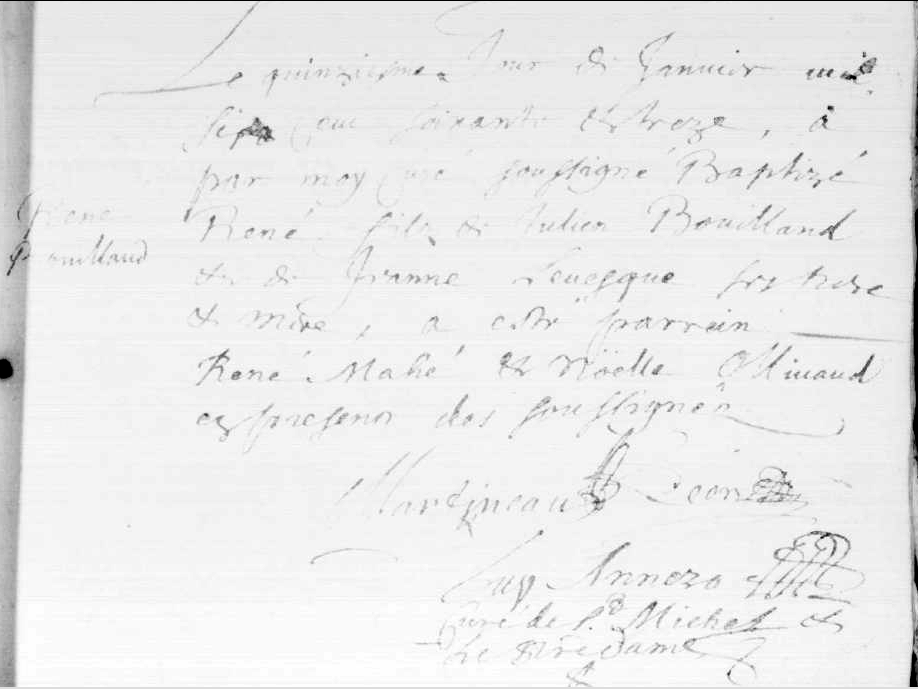 Le quinziesme Jour de Janvier mil
six cent soixante et treze, a
par moy Curé soussigné Baptizé
René
Bouilland
René fils de Julien Bouilland
et de Jeanne Levesque ses pere
et mere, a esté parrain
René Mahé et Nöelle Ollivaud
es presence des soussignés
Martineau
Luy Annezo
Curé de St Michel et